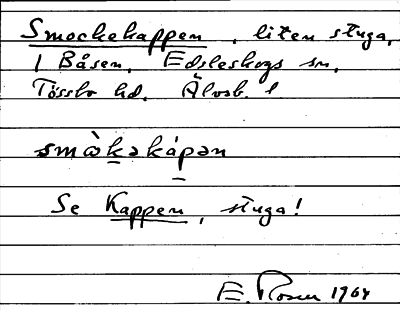 Smockekappen, liten stuga,
i Båsen, Edsleskogs sn,
Tössbo hd, Älvsb. l
smàkəkápən
Se Kappen, stuga!
E. Rosen 1964